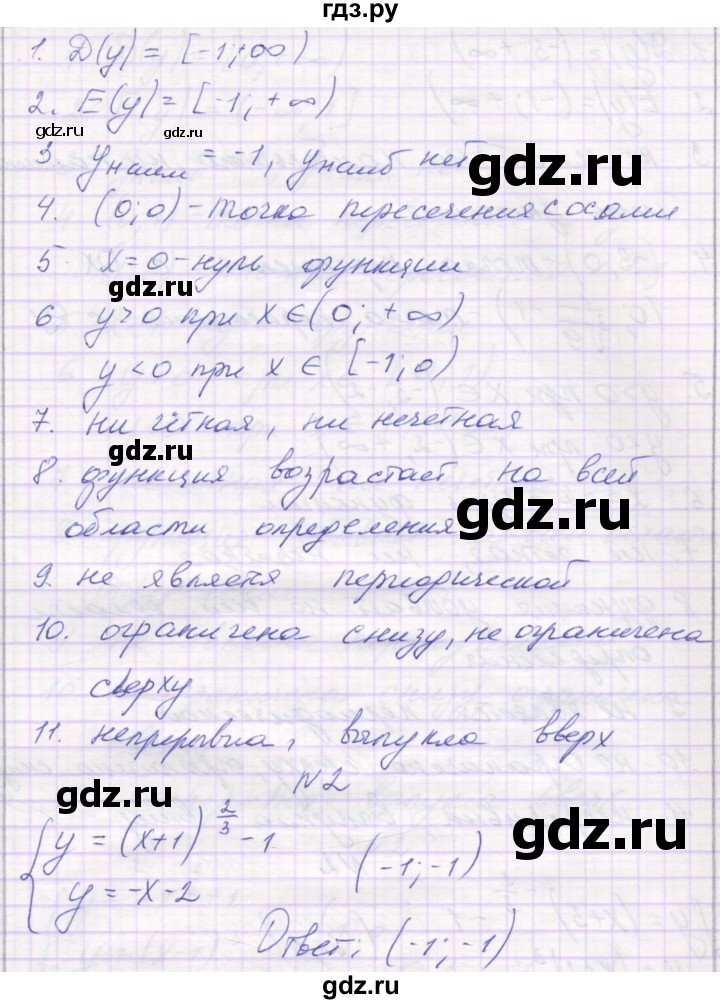 гдз.ру
1. D(y) = [-1;+∞)
2. E(y) = [-1; +∞)
gdz.ru gdz.ru
3. yнаим = -1, yнаиб нет
4. (0;0) - точка пересечения с осями
5. x=0 - нуль функции
gdz.ru gdz.ru
6. y>0 при x∈(0; +∞)
y<0 при x∈ [-1;0)
7. ни чётная, ни нечетная
gdz.ru
8. функция возрастает на всей
gdz.ru
области определения
9. не является периодической
10. ограничена снизу, не ограничена
gdz.ru
сверху
11. непрерывна, выпукла вверх
№2
gdz.ru
{ y = (x+1)^(2/3) - 1
gdz.ru
y = -x-2 (-1;-1)
Ответ: (-1;-1)
gdz.ru gdz.ru
гдз.ру